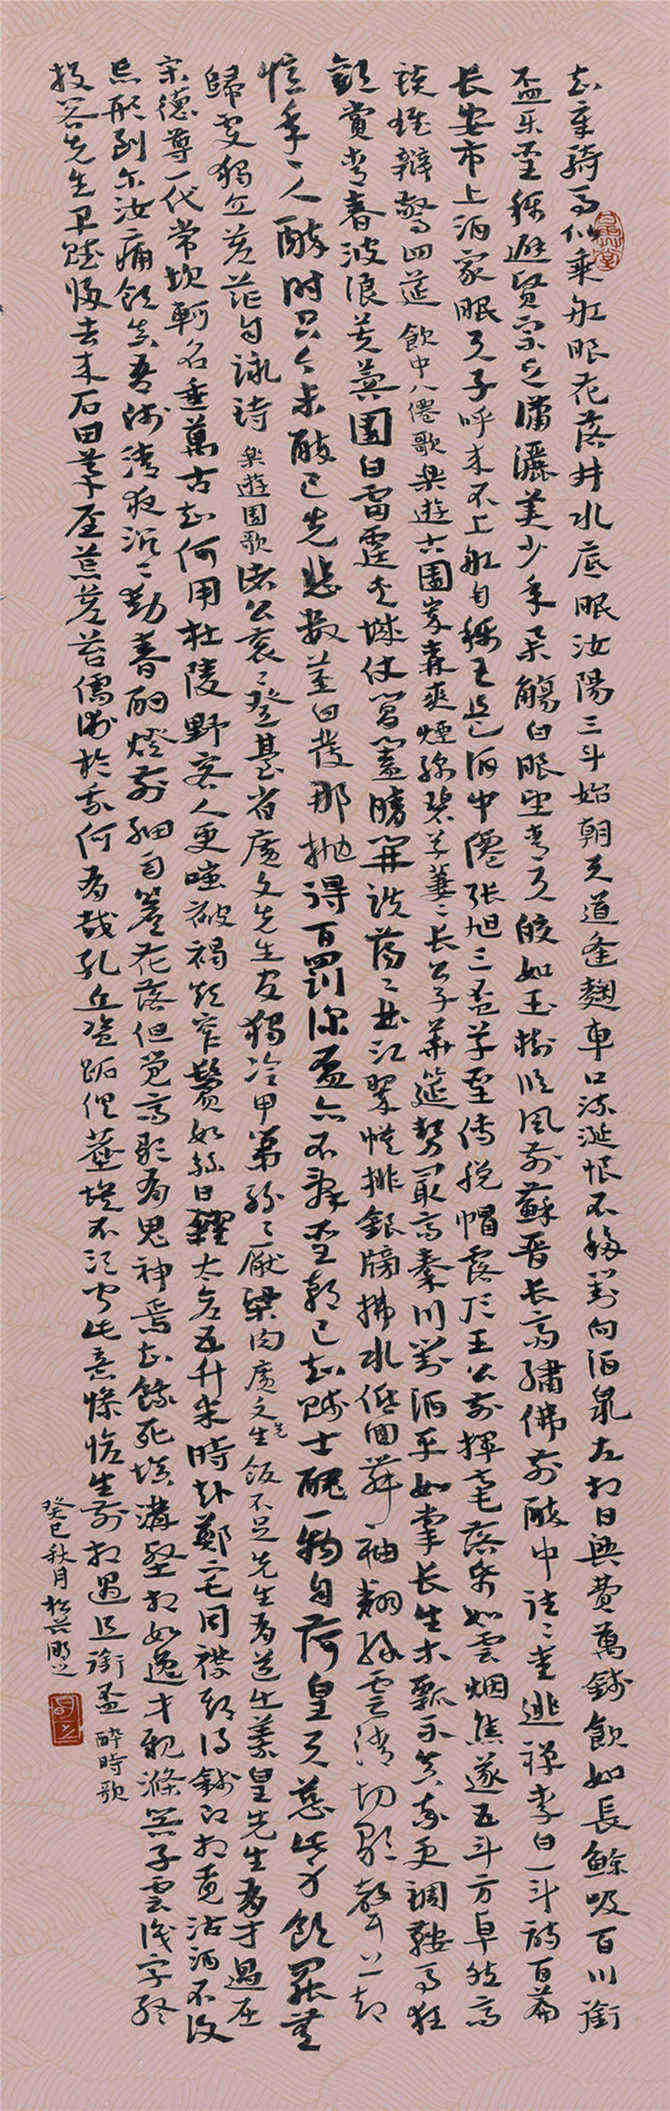 知章騎馬似乘船眼花落井水底眠汝陽三斗始朝天道逢麴車口流涎恨不移封向酒泉左相日興費萬錢飲如長鯨吸百川銜
盃樂聖稱避賢宗之瀟灑美少年舉觴白眼望青天皎如玉樹臨風前蘇晉長齋繡佛前醉中往往愛逃禪李白一斗詩百篇
长安市上酒家眠天子呼来不上船自稱臣是酒中僊張旭三盃草聖傳脫帽露頂王公前揮毫落紙如雲烟焦遂五斗方卓然高
談雄辯驚四筵 飲中八僊歌 樂遊古園崒森爽煙綿碧草萋萋长公子華筵勢最高秦川對酒平如掌长生木瓢示真率更調鞍馬狂
歡賞青春波浪芙蓉園白日雷霆夾城仗閶闔晴開詄蕩蕩曲江翠幙排銀牓拂水低回舞袖翻緣雲清切歌聲上却
憶年年人醉时只今未醉已先悲數莖白髮那抛得百罰深盃亦不辭聖朝已知賤士醜一物自荷皇天慈此身飲罷無
歸處獨立蒼茫自詠诗 樂遊园歌 諸公衮衮登臺省廣文先生官獨冷甲第紛紛厭粱肉廣文先生飯不足先生有道出羲皇先生有才過屈
宋德尊一代常坎軻名垂萬古知何用杜陵野客人更嗤被褐短窄鬢如絲日糴太倉五升米時赴鄭老同襟期得錢即相覓沽酒不復
忘形到尔汝痛飲真吾師清夜沉沉動春酌燈前細雨簷花落但覺高歌有鬼神焉知餓死填溝壑相如逸才親滌器子雲識字終
投閣先生早賦歸去来石田茅屋荒蒼苔儒術於我何有哉孔丘盜跖俱塵埃不須聞此意慘愴生前相遇且銜盃 醉時歌
癸巳秋月